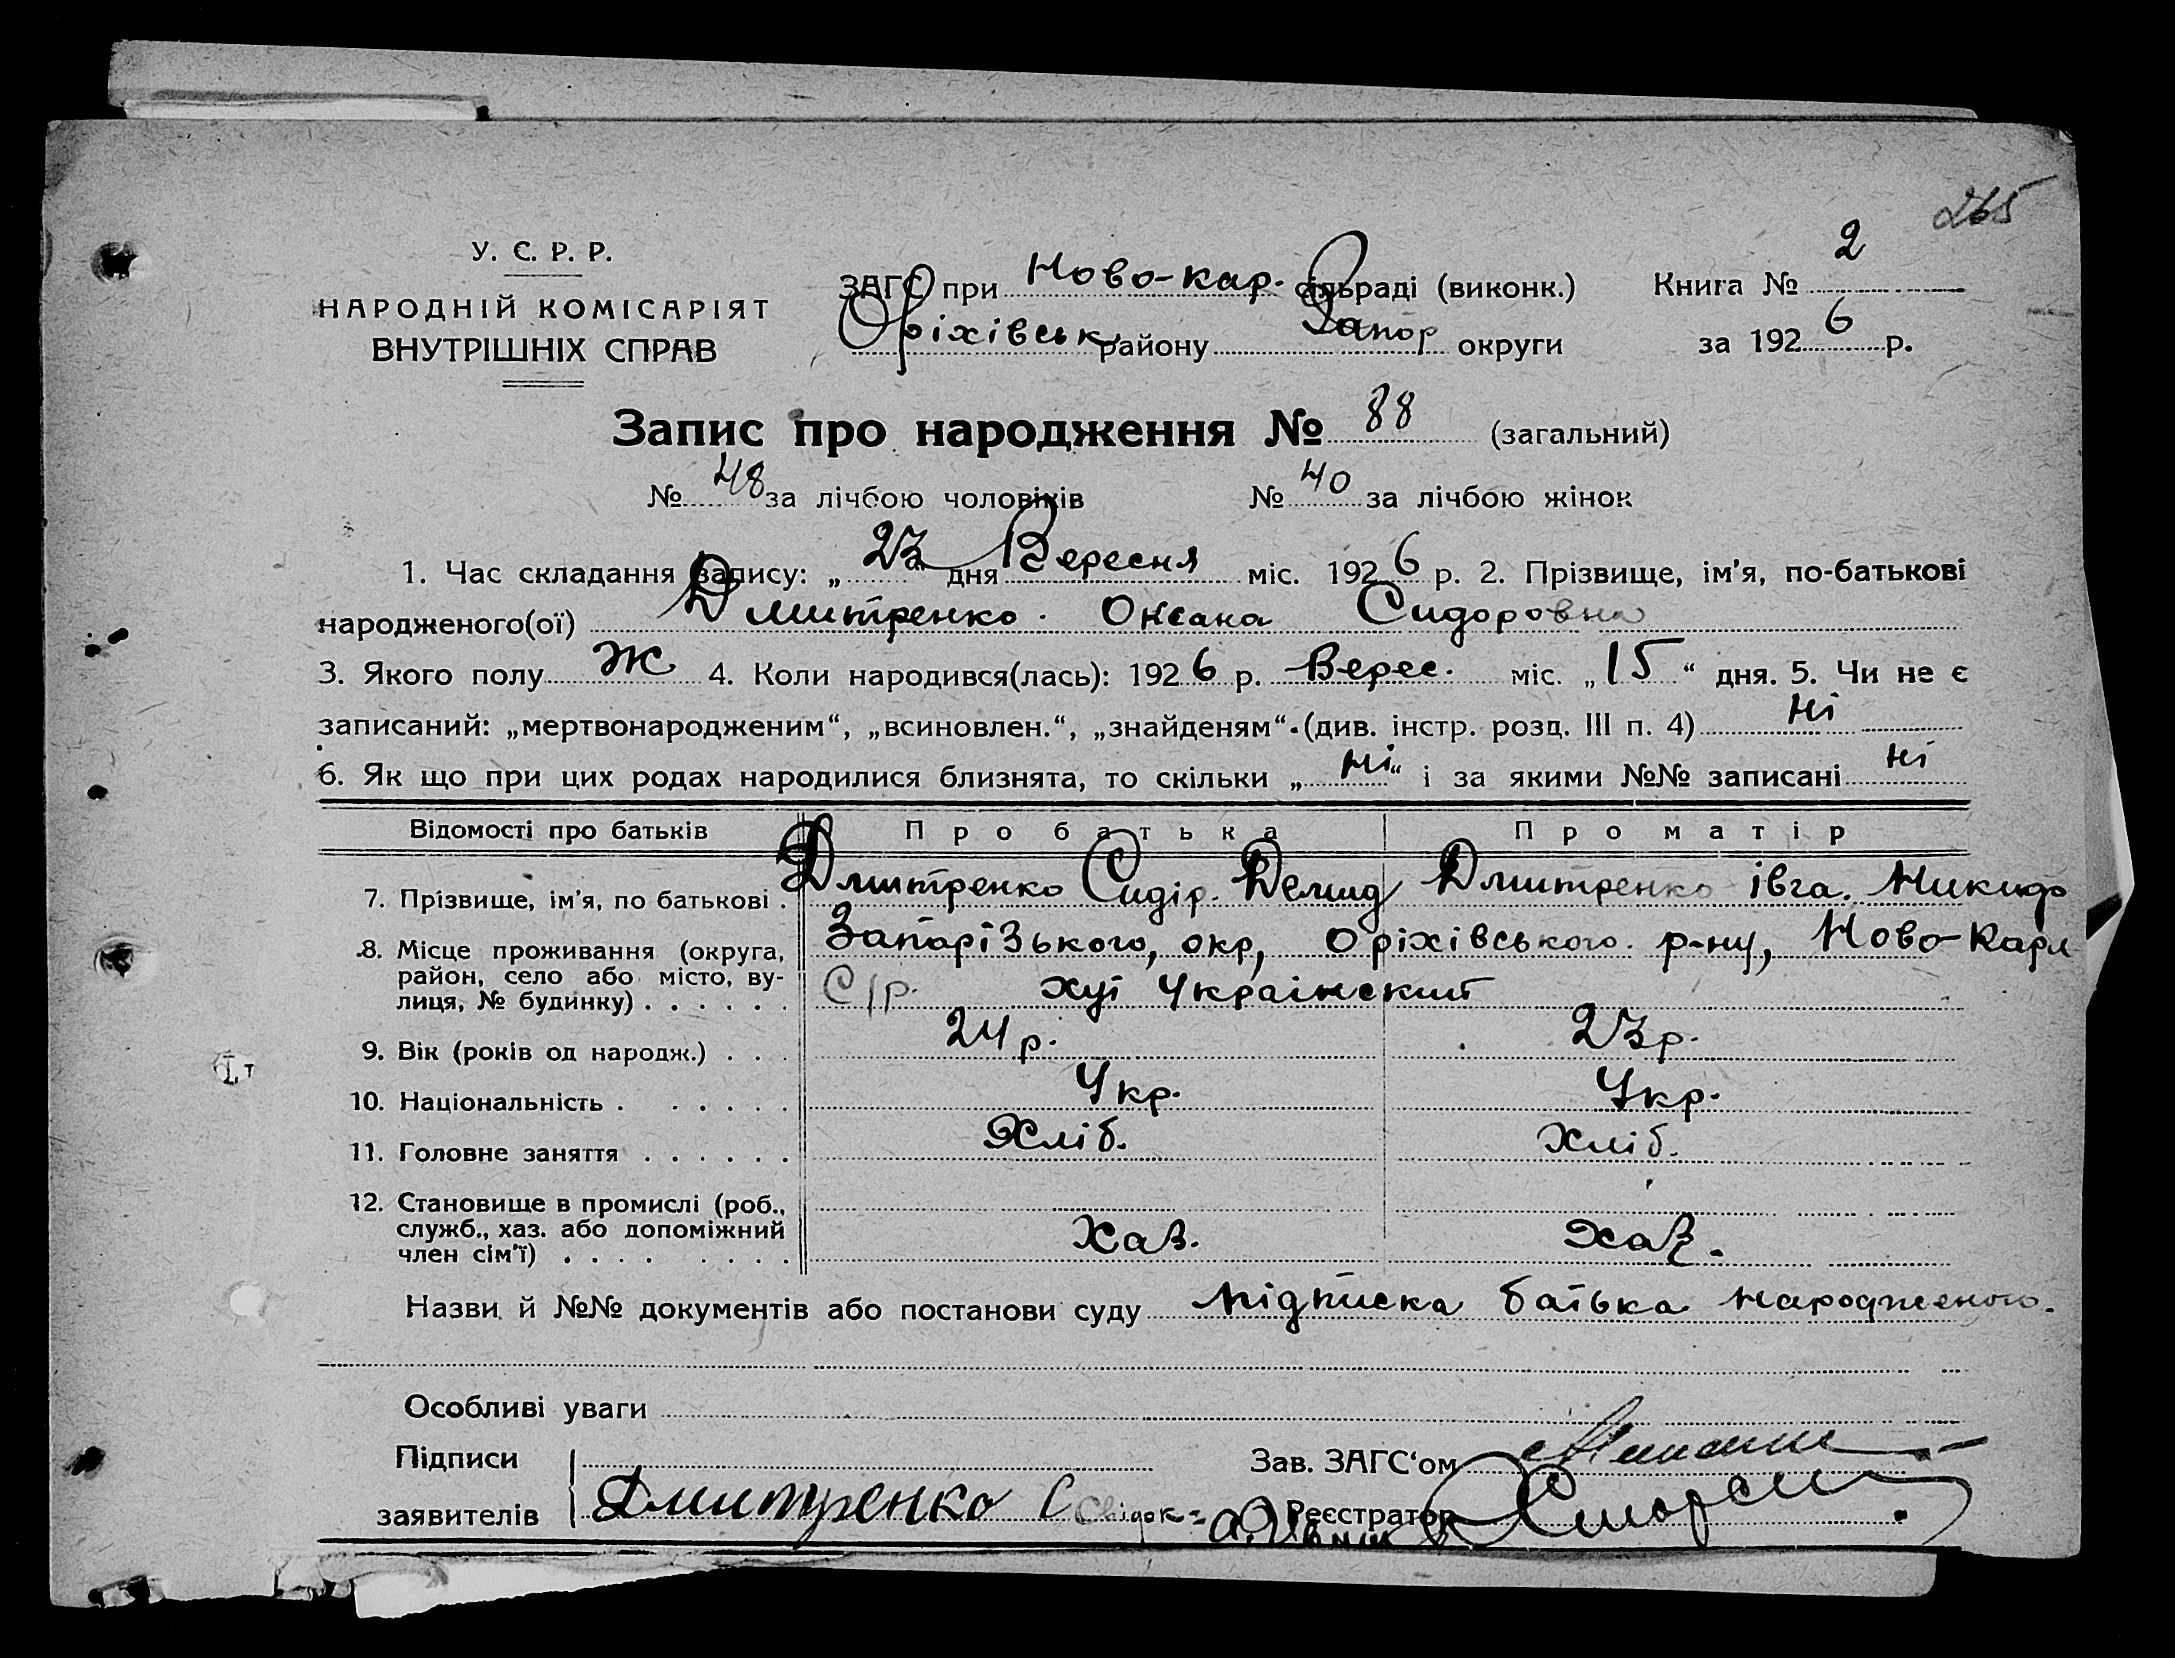 265
У. С. Р. Р.
НАРОДНІЙ КОМІСАРІЯТ
ВНУТРІШНІХ СПРАВ
ЗАГС при Ново-кар. сільраді (виконк.) Книга № 2
Оріхівськ району Запор округи за 1926 р.
Запис про народження № 88 (загальний)
№ 48 за лічбою чоловіків № 40 за лічбою жінок
1. Час складання запису: „23" дня Вересня міс. 1926 р. 2. Прізвище, ім'я, по-батькові
народженого(ої) Дмитренко Оксана Сидоровна
3. Якого полу Ж 4. Коли народився(лась): 1926 р. Верес. міс. „15" дня. 5. Чи не є
записаний: „мертвонародженим", „всиновлен.", „знайденям". (див. інстр. розд. III п. 4) ні
6. Як що при цих родах народилися близнята, то скільки „ні" і за якими №№ записані ні
Відомості про батьків Про батька Про матір
7. Прізвище, ім'я, по батькові . Дмитренко Сидір. Демид Дмитренко івга. Никифо
8. Місце проживання (округа, Запарізького, окр, Оріхівського р-ну, Ново-Карл
район, село або місто, ву-
лиця, № будинку) . . . . . . С/р. хут Украінский
9. Вік (років од народж.) . . . 24 р. 23 р.
10. Національність . . . . . . Укр. Укр.
11. Головне заняття . . . . . . Хліб. Хліб.
12. Становище в промислі (роб.,
служб., хаз. або допоміжний
член сім'ї) . . . . . . . . Хаз. Хаз.
Назви й №№ документів або постанови суду підписка батька народженого.
Особливі уваги
Підписи Зав. ЗАГС'ом
заявителів Дмитренко С Свідок= Реєстратор